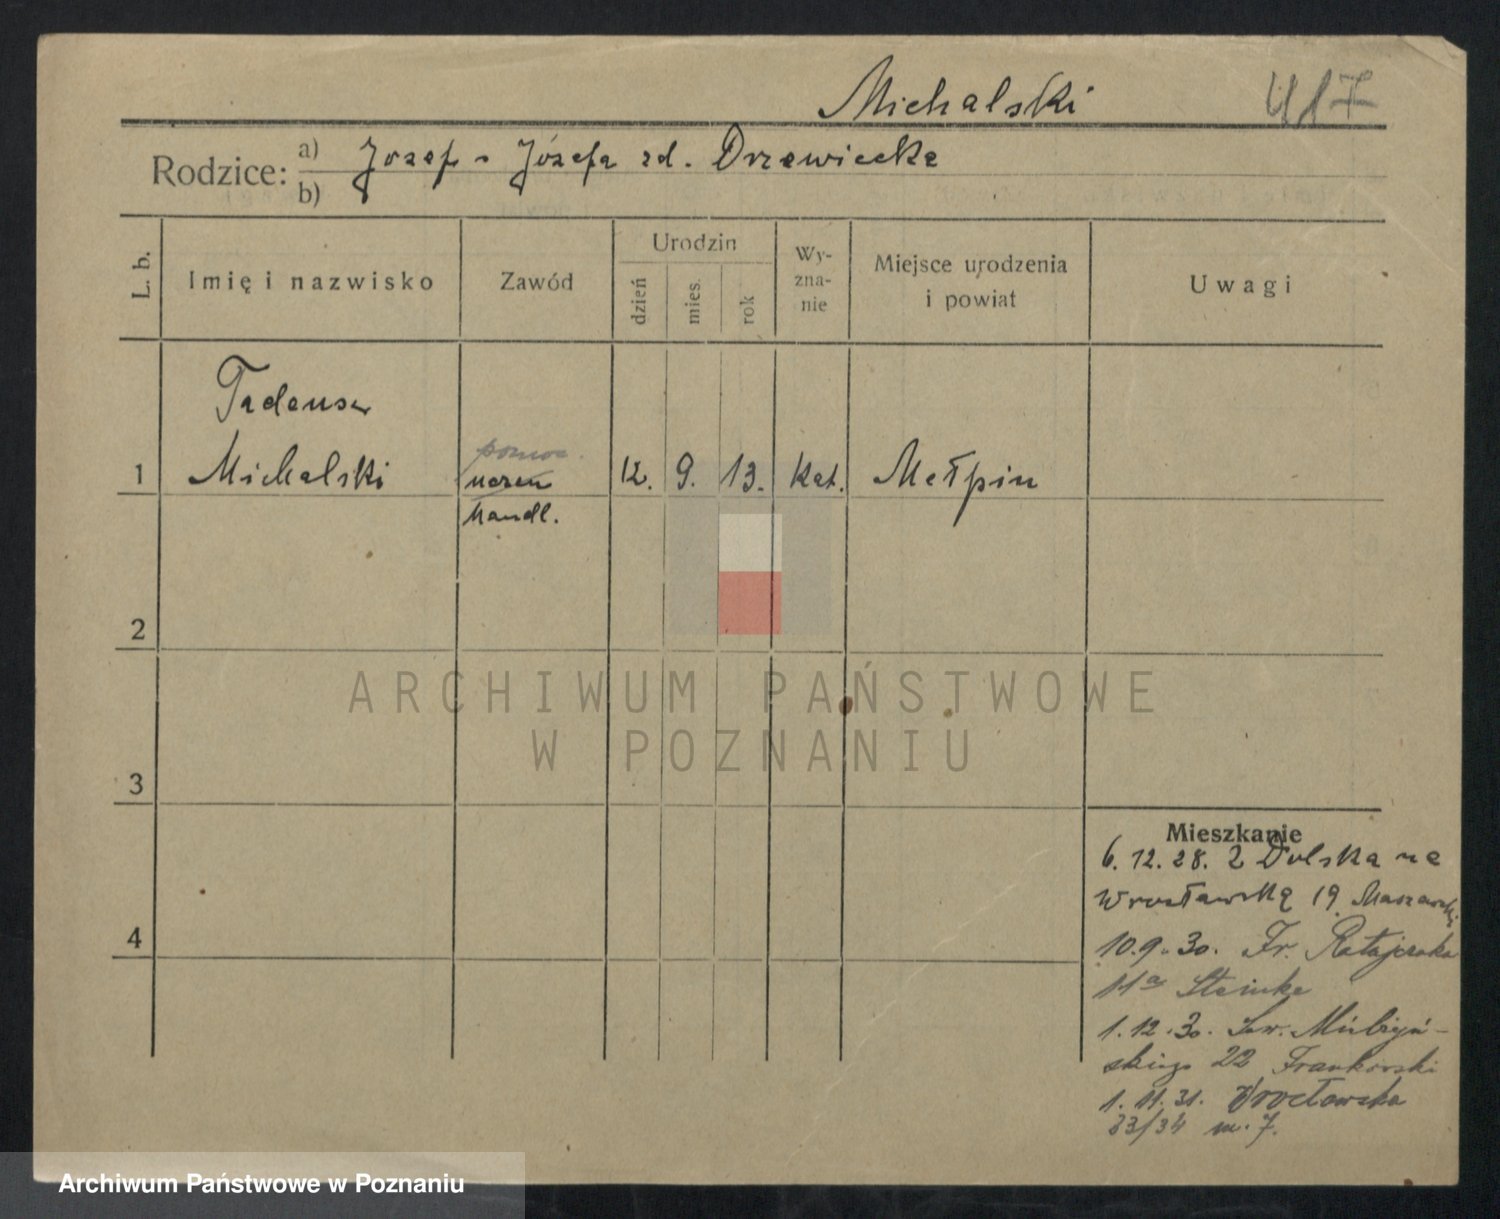 Michalski 417
Rodzice: a) Jozef - Józefa zd. Drzewiecka
b)
L. b. Imię i nazwisko Zawód Urodzin dzień mies. rok Wy-zna-nie Miejsce urodzenia i powiat Uwagi
Tadeusz
pomoc.
1 Michalski uczeń 12. 9. 13. kat. Małpin
handl.
2
ARCHIWUM PAŃSTWOWE
W POZNANIU
3
4
Mieszkanie
6.12.28. z Dolska na
Wrocławską 19
10.9.30. Fr. Ratajczaka
11a Steinke
1.12.30. Św.
skiego 22 Frankowski
1.11.31. Wrocławska
33/34 m. 7.
Archiwum Państwowe w Poznaniu